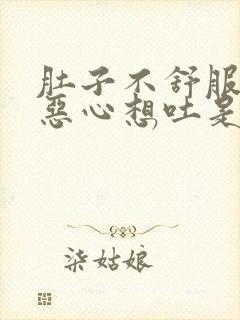 肚子不舒服
惡心想吐是
柒姑娘